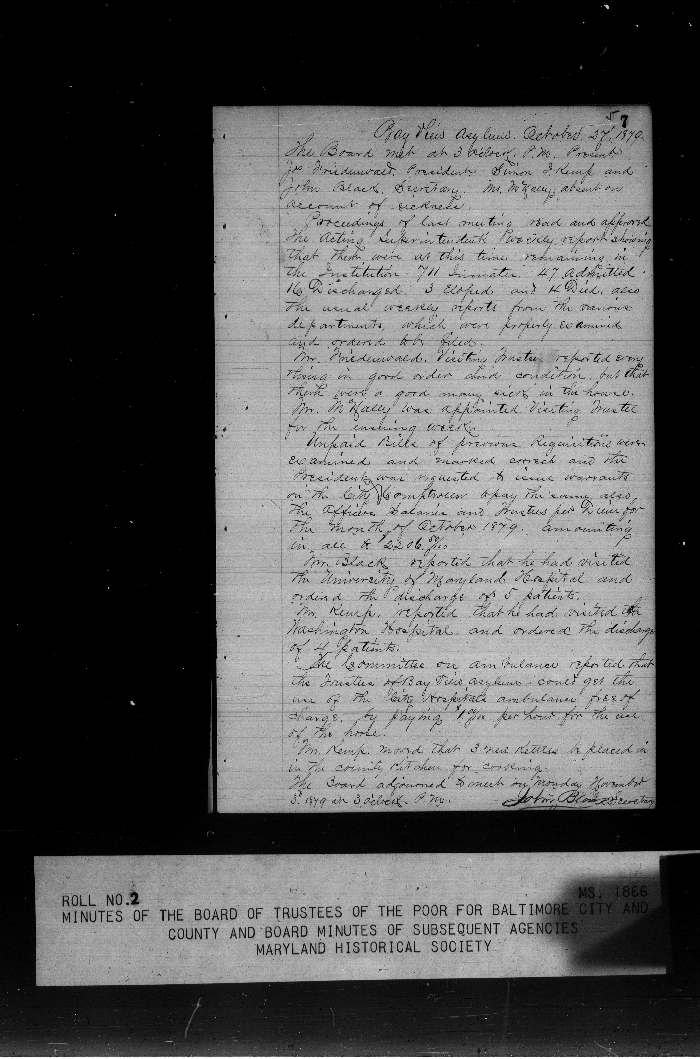 57
Bay View Asylum. October 27, 1879.
The Board met at 3 o'clock. P.M. Present
Js. Friedenwald. President. Simon J. Kemp and
John Black, Secretary. Mr. McKaley, absent on
account of sickness.
Proceedings of last meeting read and approved
The Acting Superintendents Weekly report showing
that there were at this time remaining in
the Institution 711 Inmates. 47 Admitted.
16 Discharged. 3 Eloped and 4 Died. also
the usual weekly reports from the various
departments, which were properly examined
and ordered to be filed.
Mr. Friedenwald. Visiting Trustee reported every
thing in good order and condition, but that
there were a good many sick in the house.
Mr. McKaley was appointed Visiting Trustee
for the ensuing week.
Unpaid Bills of previous Requisitions were
examined and marked correct and the
President was requested to issue warrants
on the City Comptroller to pay the same, also,
the Officers Salaries and Trustees per Diem for
the month of October 1879. amounting
in all to $2206
Mr. Black reported that he had visited
the University of Maryland Hospital and
ordered the discharge of 5 patients.
Mr. Kemp. reported that he had visited the
Washington Hospital and ordered the discharge
of 4 patients.
The Committee on ambulance reported that
the Trustees of Bay View asylum could get the
use of the City Hospitals ambulance free of
charge. by paying per hour for the use
of the horse.
Mr. Kemp. moved that 3 new Kettles be placed in
in the county Kitchen for cooking.
The Board adjourned to meet on Monday November
3d 1879 at 3 o'clock. P.M. John Black Secretary
ROLL NO.2 MS. 1866
MINUTES OF THE BOARD OF TRUSTEES OF THE POOR FOR BALTIMORE CITY AND
COUNTY AND BOARD MINUTES OF SUBSEQUENT AGENCIES
MARYLAND HISTORICAL SOCIETY